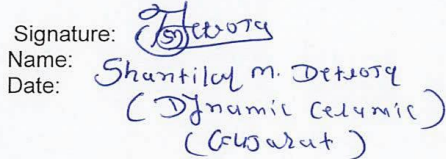 Signature:
Name: Shantilal M. Detroja
Date:
(Dynamic Ceramic)
(Gujarat)